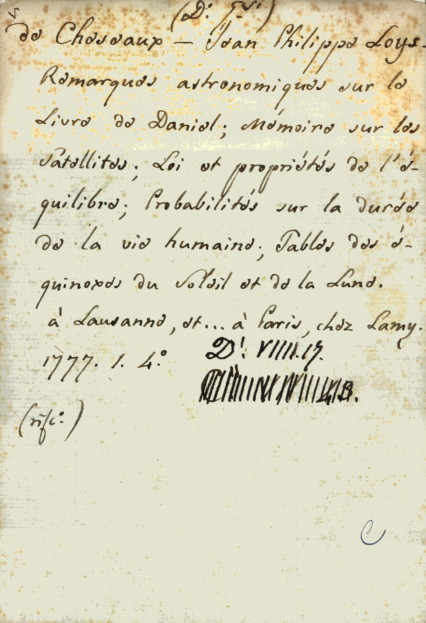 de Cheseaux — Jean Philippe Loys-
Remarques astronomiques sur le
Livre de Daniel; Mémoire sur les
Satellites; Loi et propriétés de l'é-
quilibre; Probabilités sur la durée
de la vie humaine; Tables des é-
quinoxes du Soleil et de la Lune.
à Lausanne, et... à Paris, chez Lamy.
1777. 1. 4.º Dª. VIIII.17.
(rifº.)
C